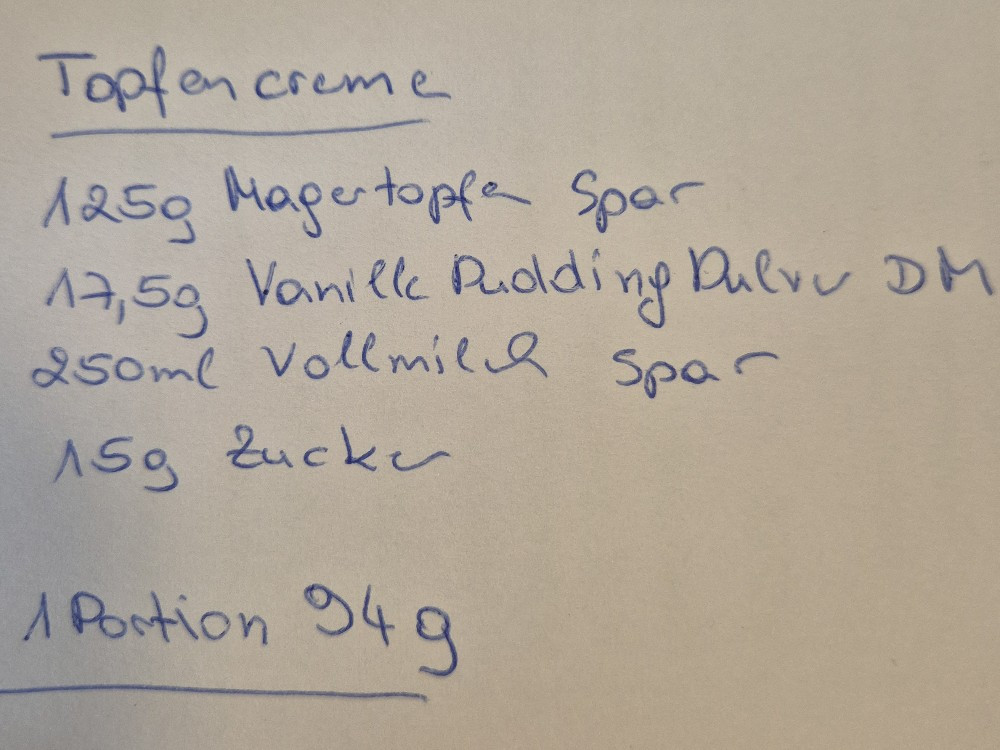 Topfencreme
125g Magertopfen Spar
17,5g Vanille Pudding Pulver DM
250ml Vollmilch Spar
15g Zucker
1 Portion 94g